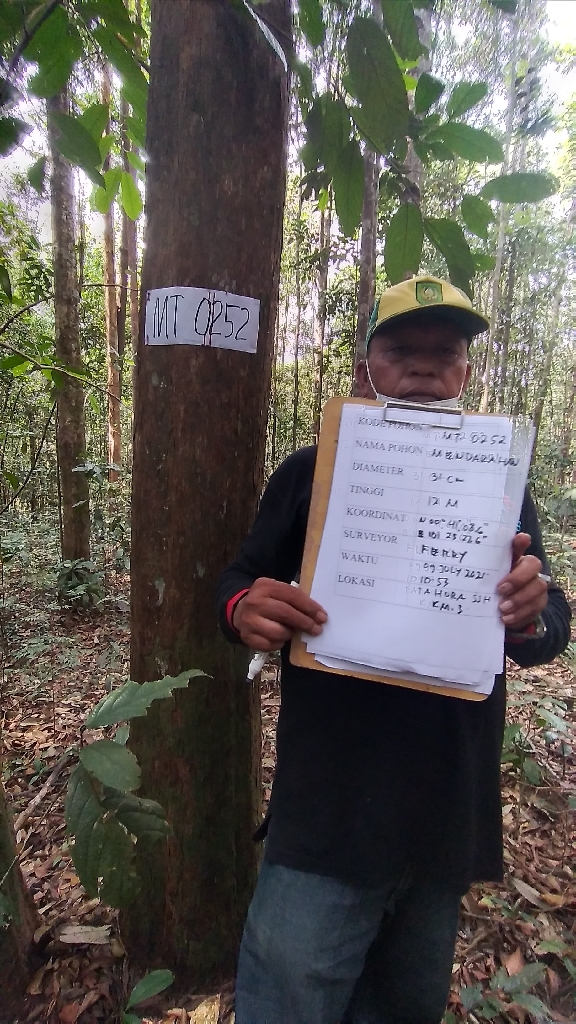 MT 0252
KODE POHON : MT 0252
NAMA POHON : MENDARAHAN
DIAMETER : 31 CM
TINGGI : 12 M
KOORDINAT : N 00° 41' 08.6"
E 101 23 22.6"
SURVEYOR : FERRY
WAKTU : 09 JULY 2021
10:53
LOKASI : TAHURA SSH
KM.3